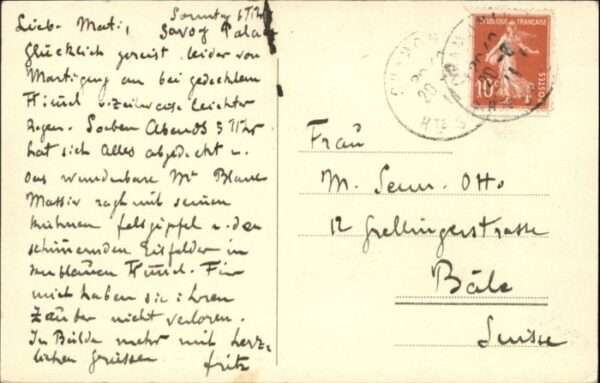 Sonntag 5 Uhr
Lieb. Mati, Savoy Palace
Glücklich gereist leider von
Martigny an bei gedecktem
Himmel u. zeitweise leichter
Regen. Soeben Abends 5 Uhr
hat sich alles abgedeckt u.
das wunderbare Mt Blanc
Massiv ragt mit seinen
kühnen Felsgipfel u. den
schimmernden Eisfelder in
den blauen Himmel. Für
mich haben sie ihren
Zauber nicht verloren.
In Bälde mehr mit herz-
lichen Grüssen fritz
RÉPUBLIQUE FRANÇAISE
10c
POSTES
CHAMONIX
HTE S
Frau
M. Senn-Otto
12 Grellingerstrasse
Bâle
Suisse